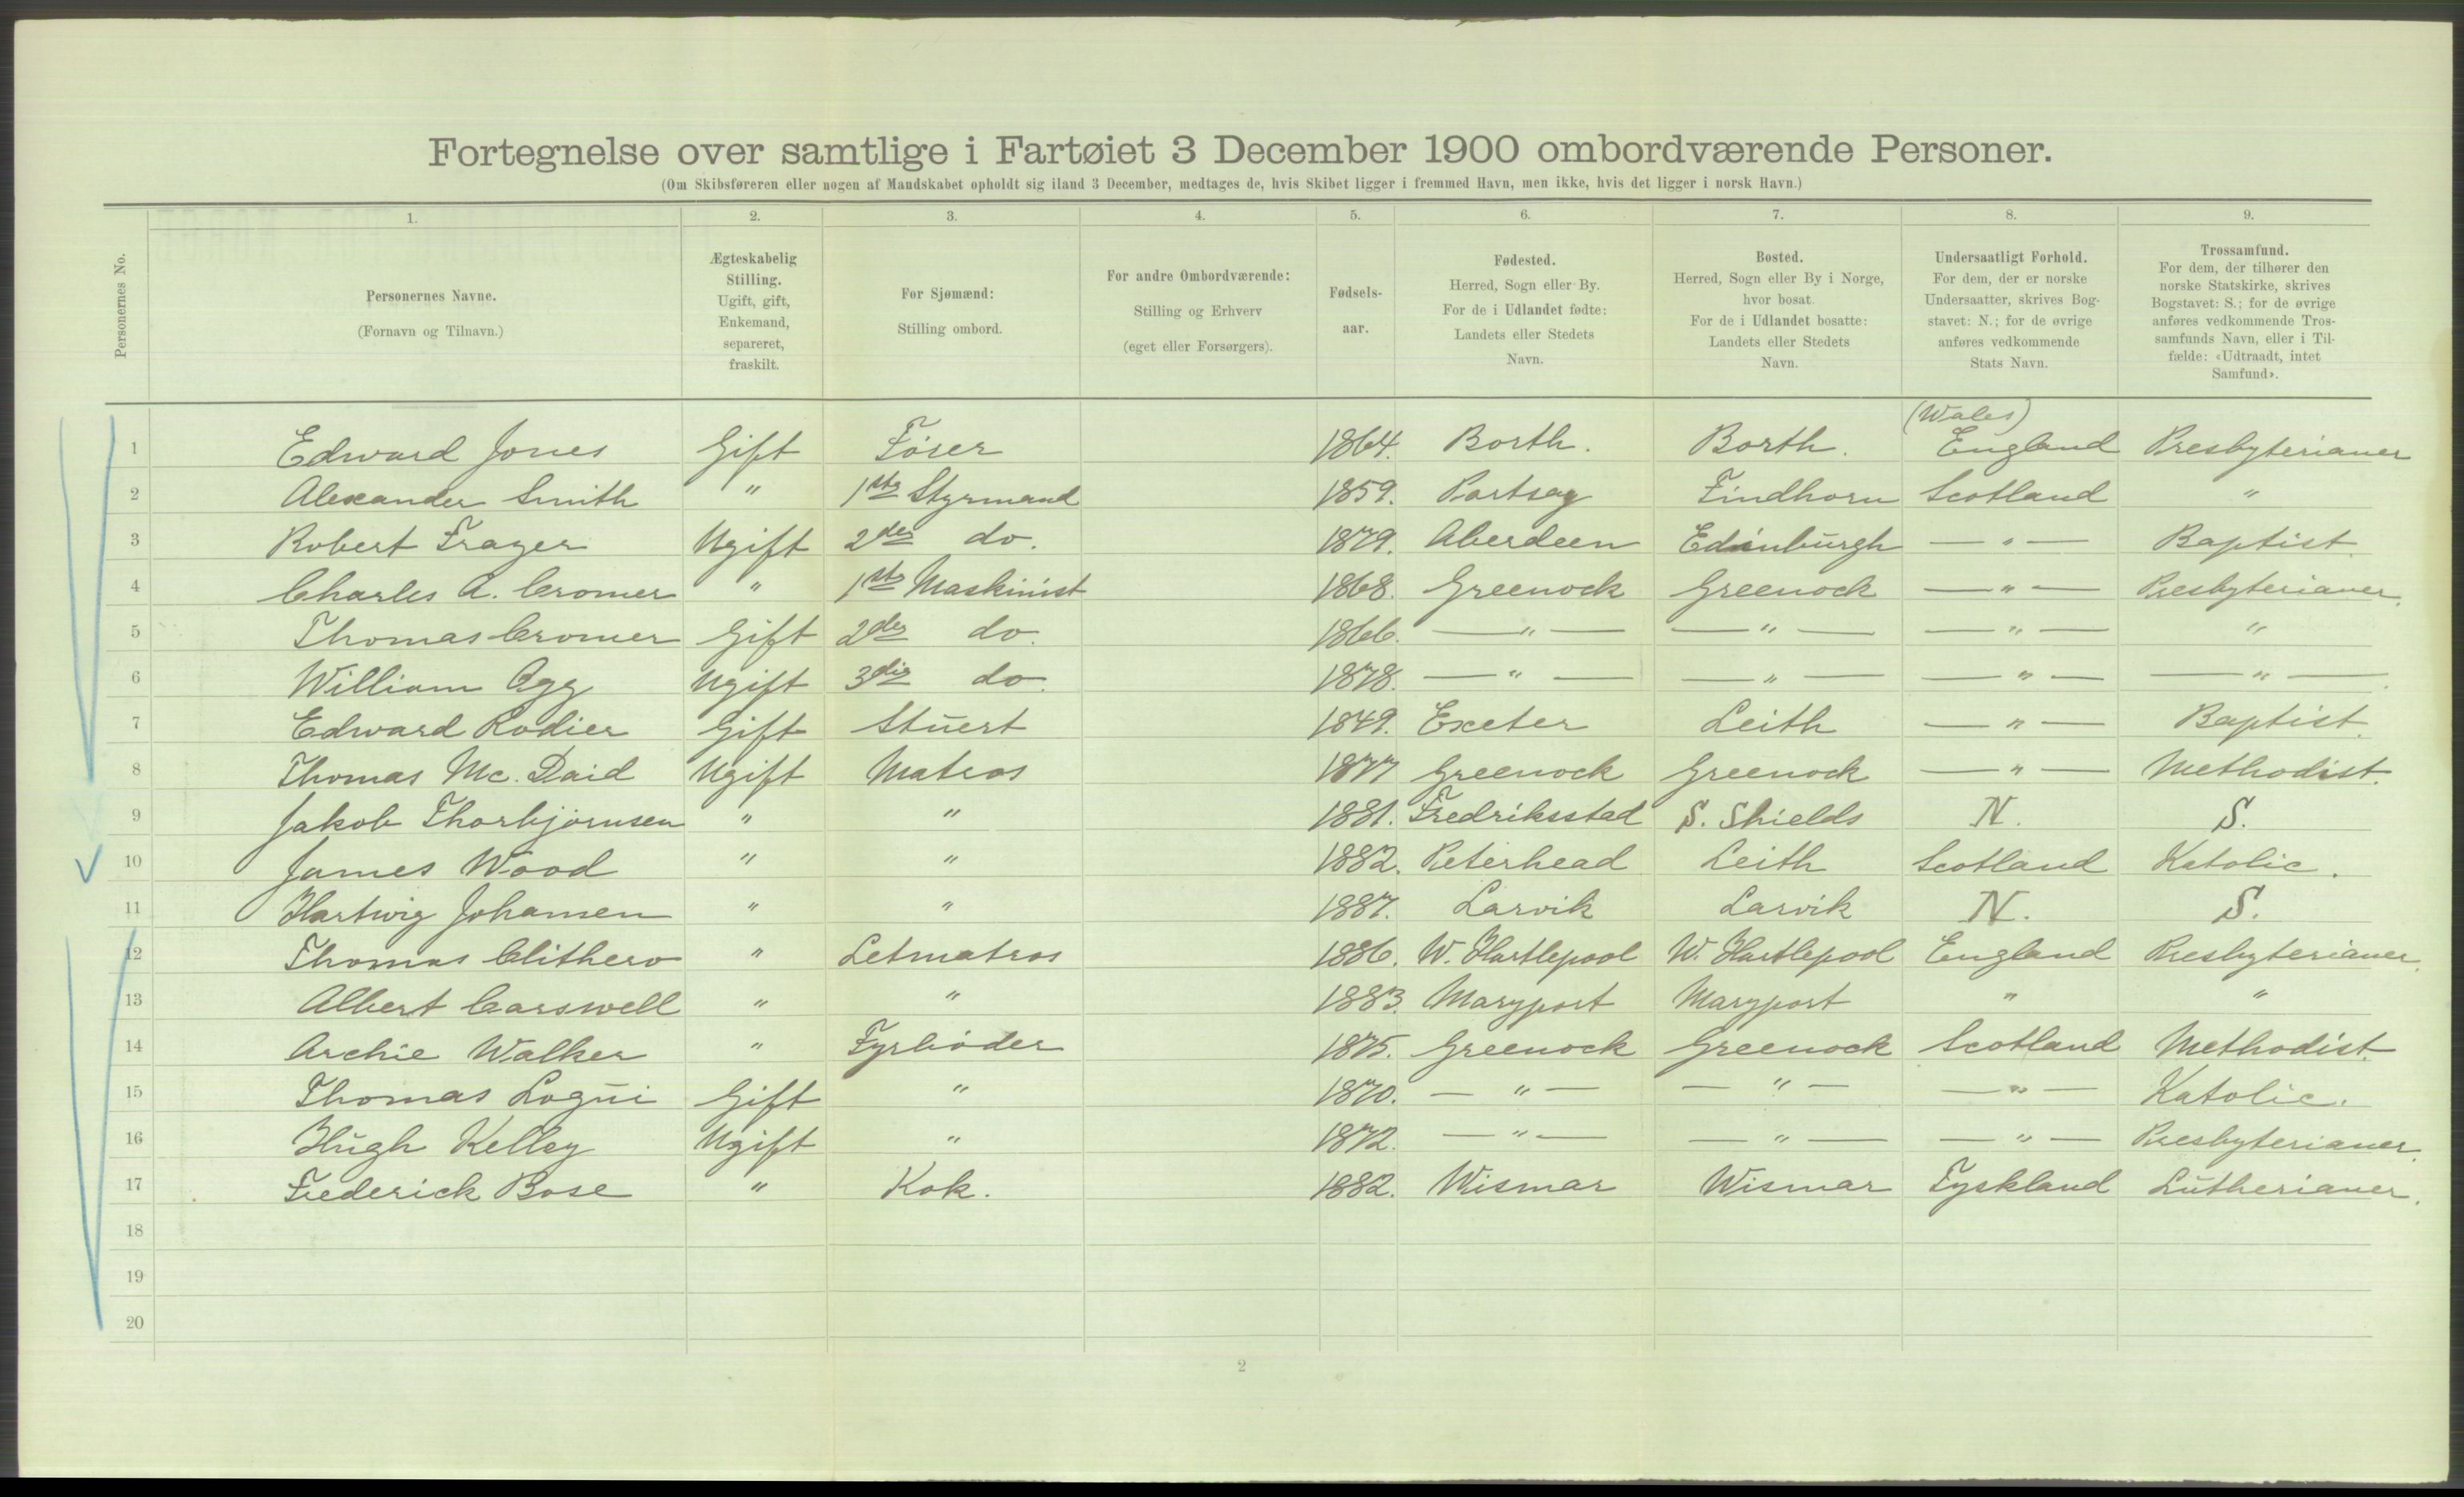 Fortegnelse over samtlige i Fartøiet 3 December 1900 ombordværende Personer.
(Om Skibsføreren eller nogen af Mandskabet opholdt sig iland 3 December, medtages de, hvis Skibet ligger i fremmed Havn, men ikke, hvis det ligger i norsk Havn.)
1. 2. 3. 4. 5. 6. 7. 8. 9.
Personernes No.
Personernes Navne.
(Fornavn og Tilnavn.)
Ægteskabelig
Stilling.
Ugift, gift,
Enkemand,
separeret,
fraskilt.
For Sjømænd:
Stilling ombord.
For andre Ombordværende:
Stilling og Erhverv
(eget eller Forsørgers).
Fødsels-
aar.
Fødested.
Herred, Sogn eller By.
For de i Udlandet fødte:
Landets eller Stedets
Navn.
Bosted.
Herred, Sogn eller By i Norge,
hvor bosat.
For de i Udlandet bosatte:
Landets eller Stedets
Navn.
Undersaatligt Forhold.
For dem, der er norske
Undersaatter, skrives Bog-
stavet: N.; for de øvrige
anføres vedkommende
Stats Navn.
Trossamfund.
For dem, der tilhører den
norske Statskirke, skrives
Bogstavet: S.; for de øvrige
anføres vedkommende Tros-
samfunds Navn, eller i Til-
fælde: «Udtraadt, intet
Samfund».
(Wales)
1 Edward Jones Gift Fører 1864. Borth. Borth. England Presbyterianer
2 Alexander Smith " 1ste Styrmand 1859. Portsoy Findhorn Scotland "
3 Robert Frazer Ugift 2den do. 1879. Aberdeen Edinburgh — " — Baptist.
4 Charles A. Cromer " 1ste Maskinist 1868. Greenock Greenock — " — Presbyterianer.
5 Thomas Cromer Gift 2den do. 1866. — " — — " — — " — "
6 William Ogg Ugift 3die do. 1878. — " — — " — — " — — " —
7 Edward Rodier Gift Stuert 1849. Exeter Leith — " — Baptist.
8 Thomas Mc. Daid Ugift Matros 1877 Greenock Greenock — " — Methodist.
9 Jakob Thorbjørnsen " " 1881. Fredriksstad S. Shields N. S.
10 James Wood " " 1882. Peterhead Leith Scotland Katolic.
11 Hartwig Johansen " " 1887. Larvik Larvik N. S.
12 Thomas Clithero " Letmatros 1886. W. Hartlepool W. Hartlepool England Presbyterianer.
13 Albert Carswell " " 1883. Maryport Maryport " "
14 Archie Walker " Fyrbøder 1875. Greenock Greenock Scotland Methodist.
15 Thomas Logui Gift " 1870. — " — — " — — " — Katolic.
16 Hugh Kelley Ugift " 1872. — " — — " — — " — Presbyterianer.
17 Frederick Bose " Kok. 1882. Wismar Wismar Tyskland Lutherianer.
18
19
20
2